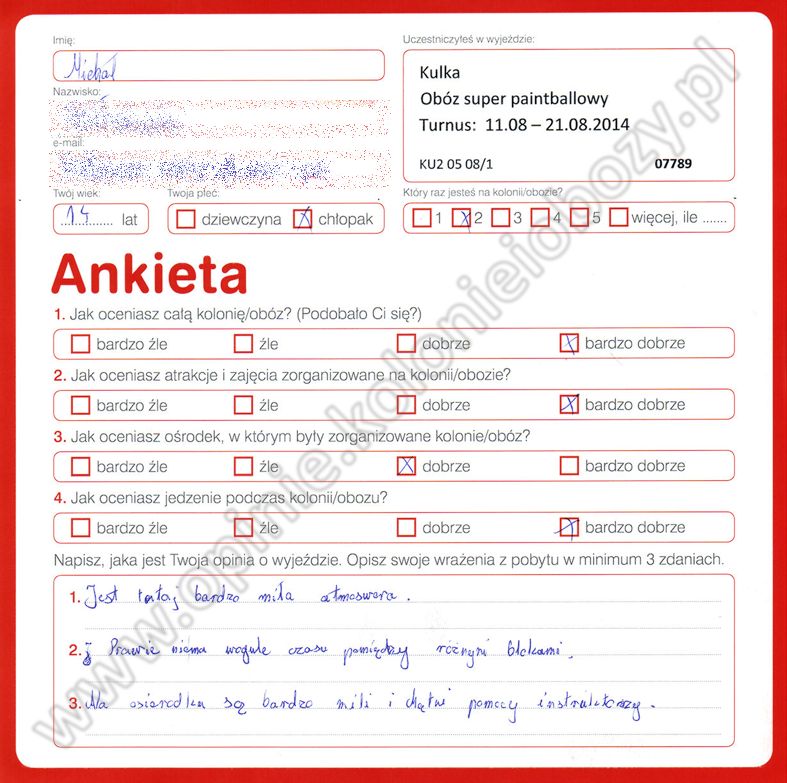 Imię:
Uczestniczyłeś w wyjeździe:
Michał
Kulka
Nazwisko:
Obóz super paintballowy
Turnus: 11.08 – 21.08.2014
e-mail:
KU2 05 08/1 07789
Twój wiek: Twoja płeć: Który raz jesteś na kolonii/obozie?
14 lat dziewczyna X chłopak 1 X 2 3 4 5 więcej, ile .......
Ankieta
1. Jak oceniasz całą kolonię/obóz? (Podobało Ci się?)
bardzo źle źle dobrze X bardzo dobrze
2. Jak oceniasz atrakcje i zajęcia zorganizowane na kolonii/obozie?
bardzo źle źle dobrze X bardzo dobrze
3. Jak oceniasz ośrodek, w którym były zorganizowane kolonie/obóz?
bardzo źle źle X dobrze bardzo dobrze
4. Jak oceniasz jedzenie podczas kolonii/obozu?
bardzo źle źle dobrze X bardzo dobrze
Napisz, jaka jest Twoja opinia o wyjeździe. Opisz swoje wrażenia z pobytu w minimum 3 zdaniach.
1. Jest tutaj bardzo miła atmoswera.
2. Prawie niema wogule czasu pomiędzy różnymi blokami.
3. Na osierodku są bardzo mili i chętni pomocy instruktorzy.
www.opinie.kolonieiobozy.pl